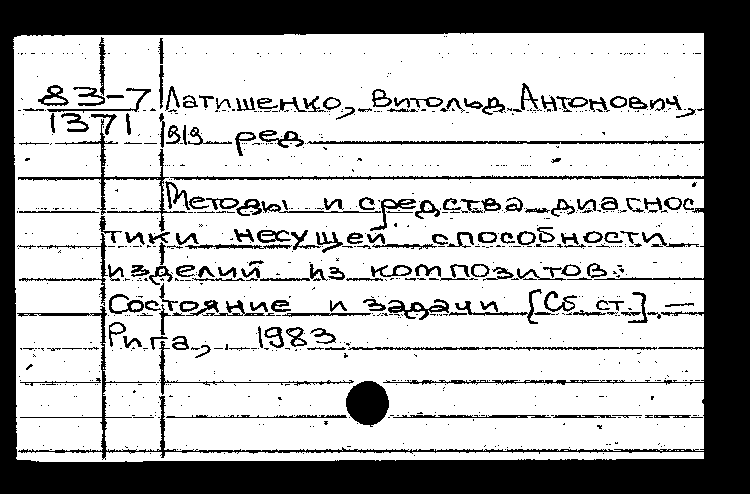 83-7 Латишенко, Витольд Антонович,
1371 ред
Методы и средства диагнос
тики несущей способности
изделий из композитов:
Состояние и задачи [Сб. ст.]. —
Рига, 1983.